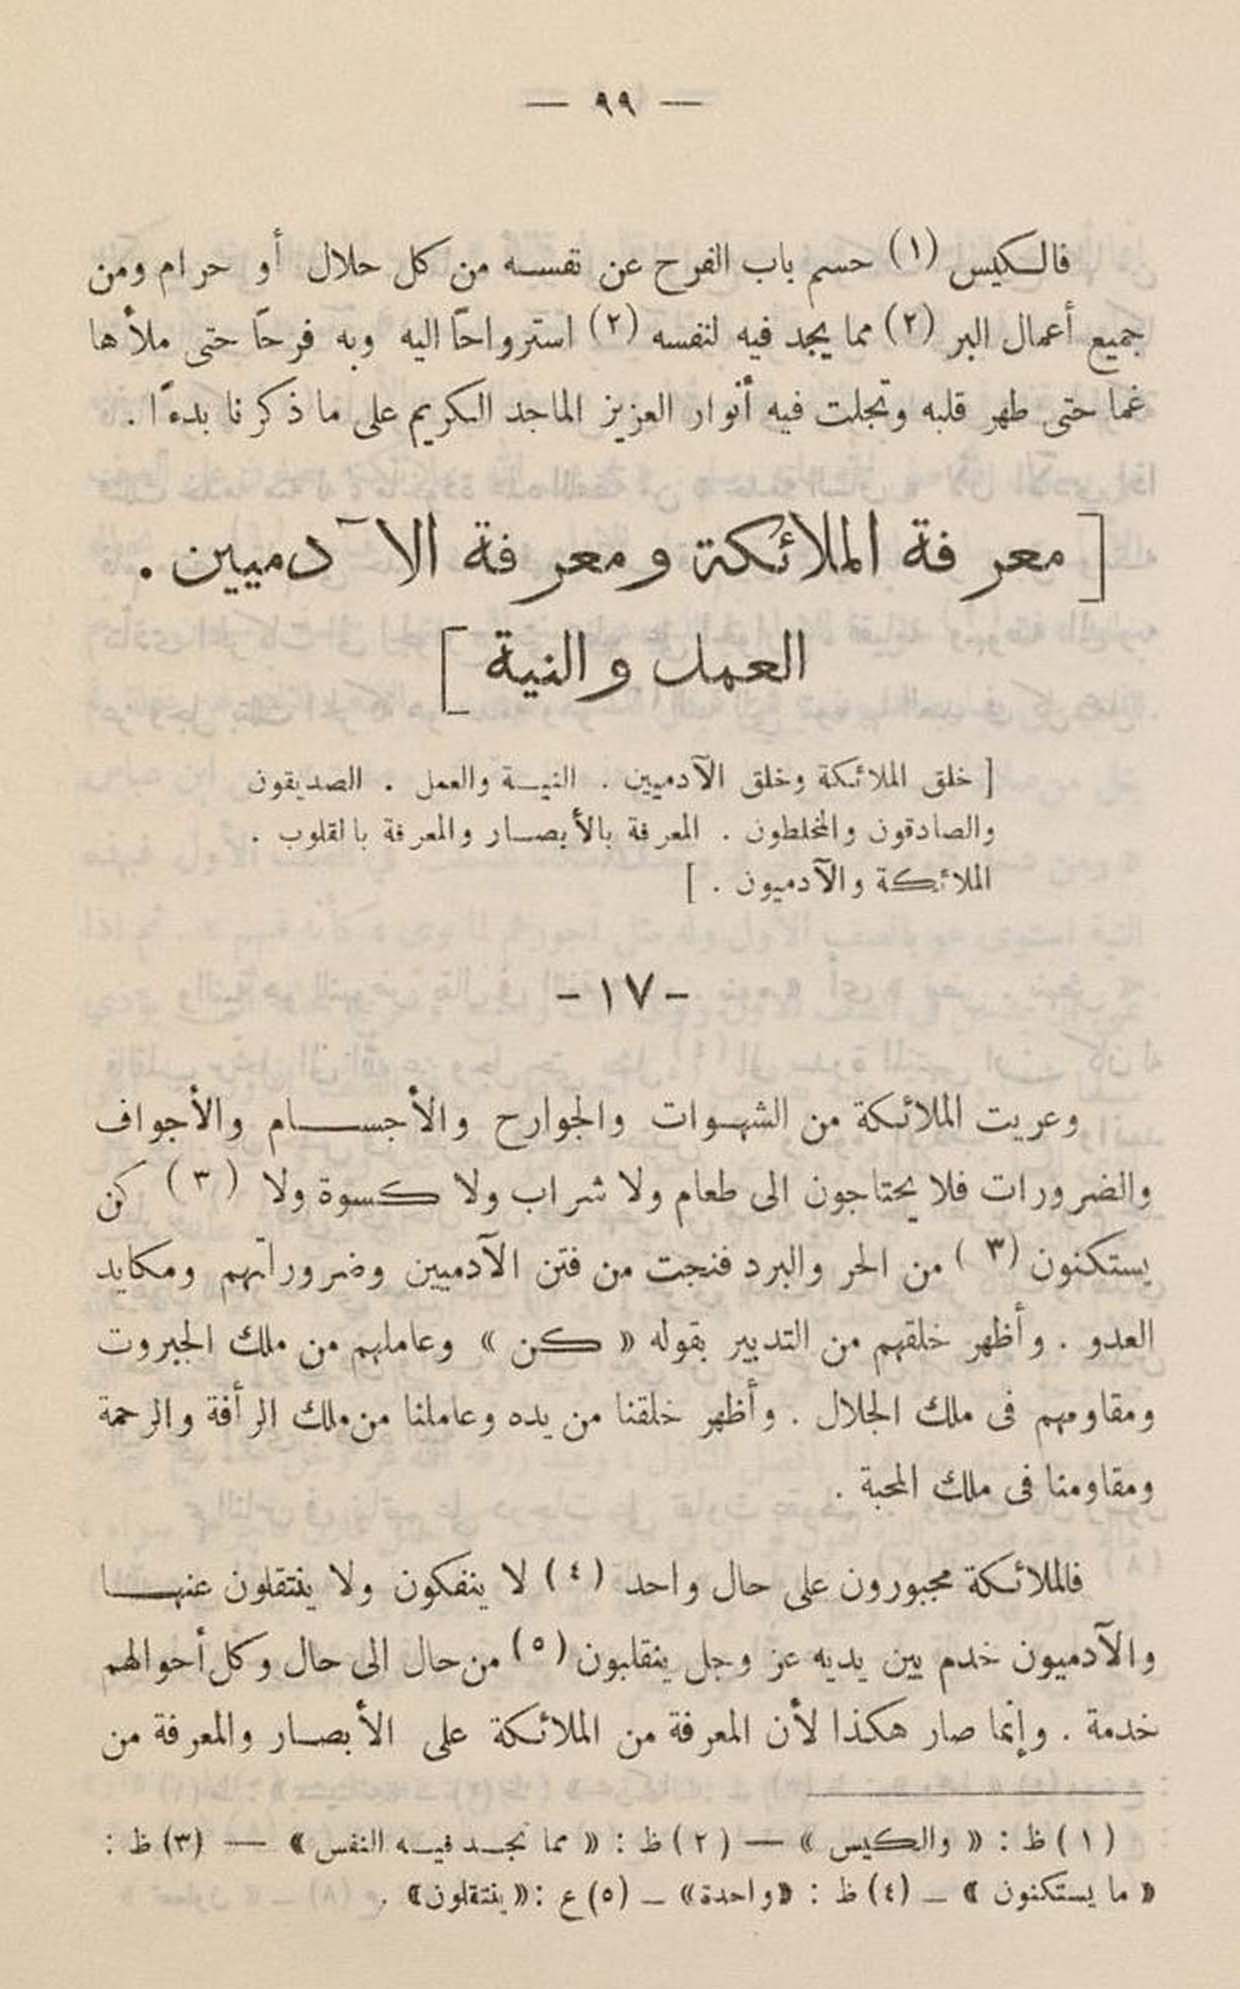 — ٩٩ —
فالكيس (١) حسم باب الفرح عن نفسه من كل حلال أو حرام ومن
جميع أعمال البر (٢) مما يجد فيه لنفسه (٢) استرواحًا اليه وبه فرحًا حتى ملأها
غما حتى طهر قلبه وتجلت فيه أنوار العزيز الماجد الكريم على ما ذكرنا بدءًا .
[ معرفة الملائكة ومعرفة الآدميين .
العمل والنية ]
[ خلق الملائكة وخلق الآدميين . النية والعمل . الصديقون
والصادقون والمخلطون . المعرفة بالأبصار والمعرفة بالقلوب .
الملائكة والآدميون . ]
- ١٧ -
وعريت الملائكة من الشهوات والجوارح والأجسام والأجواف
والضرورات فلا يحتاجون الى طعام ولا شراب ولا كسوة ولا (٣) كن
يستكنون (٣) من الحر والبرد فنجت من فتن الآدميين وضروراتهم ومكايد
العدو . وأظهر خلقهم من التدبير بقوله « كن » وعاملهم من ملك الجبروت
ومقاومهم فى ملك الجلال . وأظهر خلقنا من يده وعاملنا من ملك الرأفة والرحمة
ومقاومنا فى ملك المحبة .
فالملائكة مجبورون على حال واحد (٤) لا ينفكون ولا ينتقلون عنها
والآدميون خدم بين يديه عز وجل ينقلبون (٥) من حال الى حال وكل أحوالهم
خدمة . وإنما صار هكذا لأن المعرفة من الملائكة على الأبصار والمعرفة من
(١) ظ : « والكيس » — (٢) ظ : « مما نجد فيه النفس » — (٣) ظ :
« ما يستكنون » — (٤) ظ : «واحدة» — (٥) ع : «ينتقلون» .